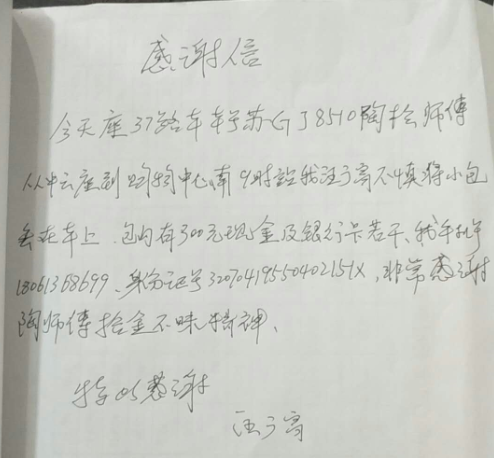 感谢信
今天座37路车车号苏GJ8510陶师傅
从中云座到购物中心南9时许我汪子高不慎将小包
丢在车上.包内有300元现金及银行卡若干、我手机号
18061368699、身份证号32070419550402151X,非常感谢
陶师傅拾金不昧精神、
特此感谢
汪子高